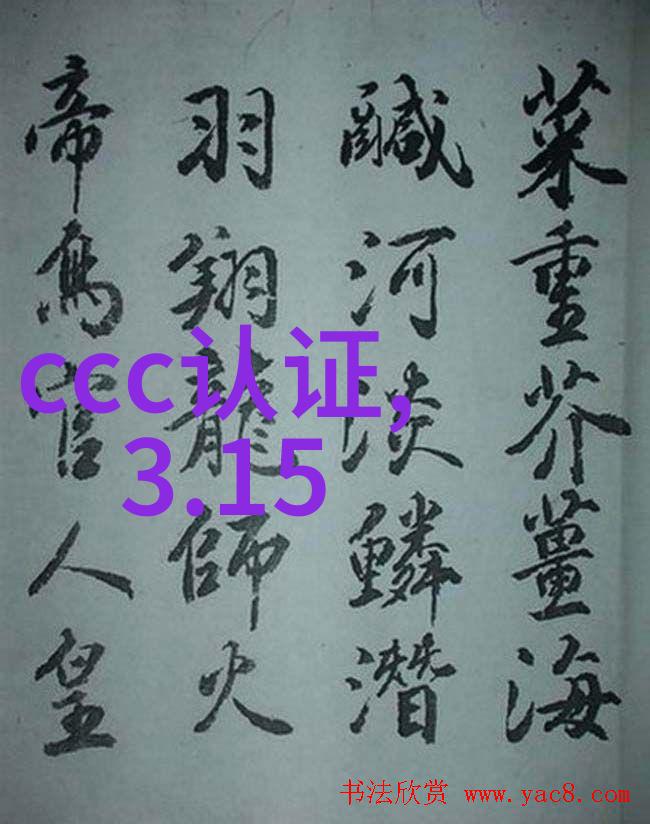 菜重芥薑海
鹹河淡鱗潛
羽翔龍師火
帝鳥官人皇
ccc认证,
3.15
书法欣赏 www.yac8.com